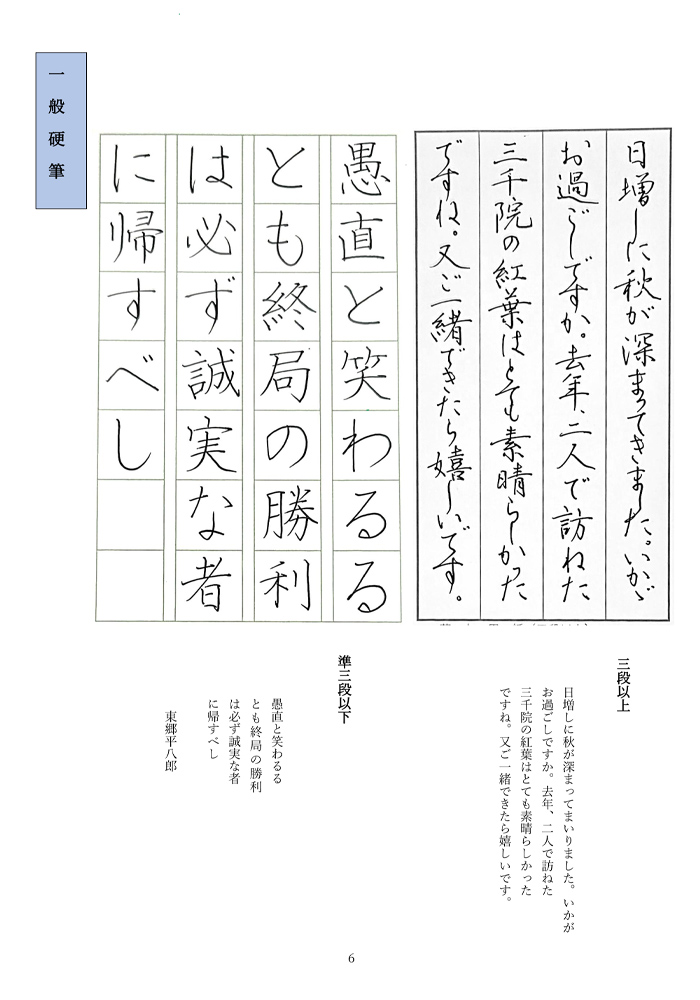 一般硬筆
日増しに秋が深まってきました。いかゞ
お過ごしですか。去年、二人で訪ねた
三千院の紅葉はとても素晴らしかった
ですね。又ご一緒できたら嬉しいです。
愚直と笑わるる
とも終局の勝利
は必ず誠実な者
に帰すべし
三段以上
日増しに秋が深まってまいりました。いかが
お過ごしですか。去年、二人で訪ねた
三千院の紅葉はとても素晴らしかった
ですね。又ご一緒できたら嬉しいです。
準三段以下
愚直と笑わるる
とも終局の勝利
は必ず誠実な者
に帰すべし
東郷平八郎
6